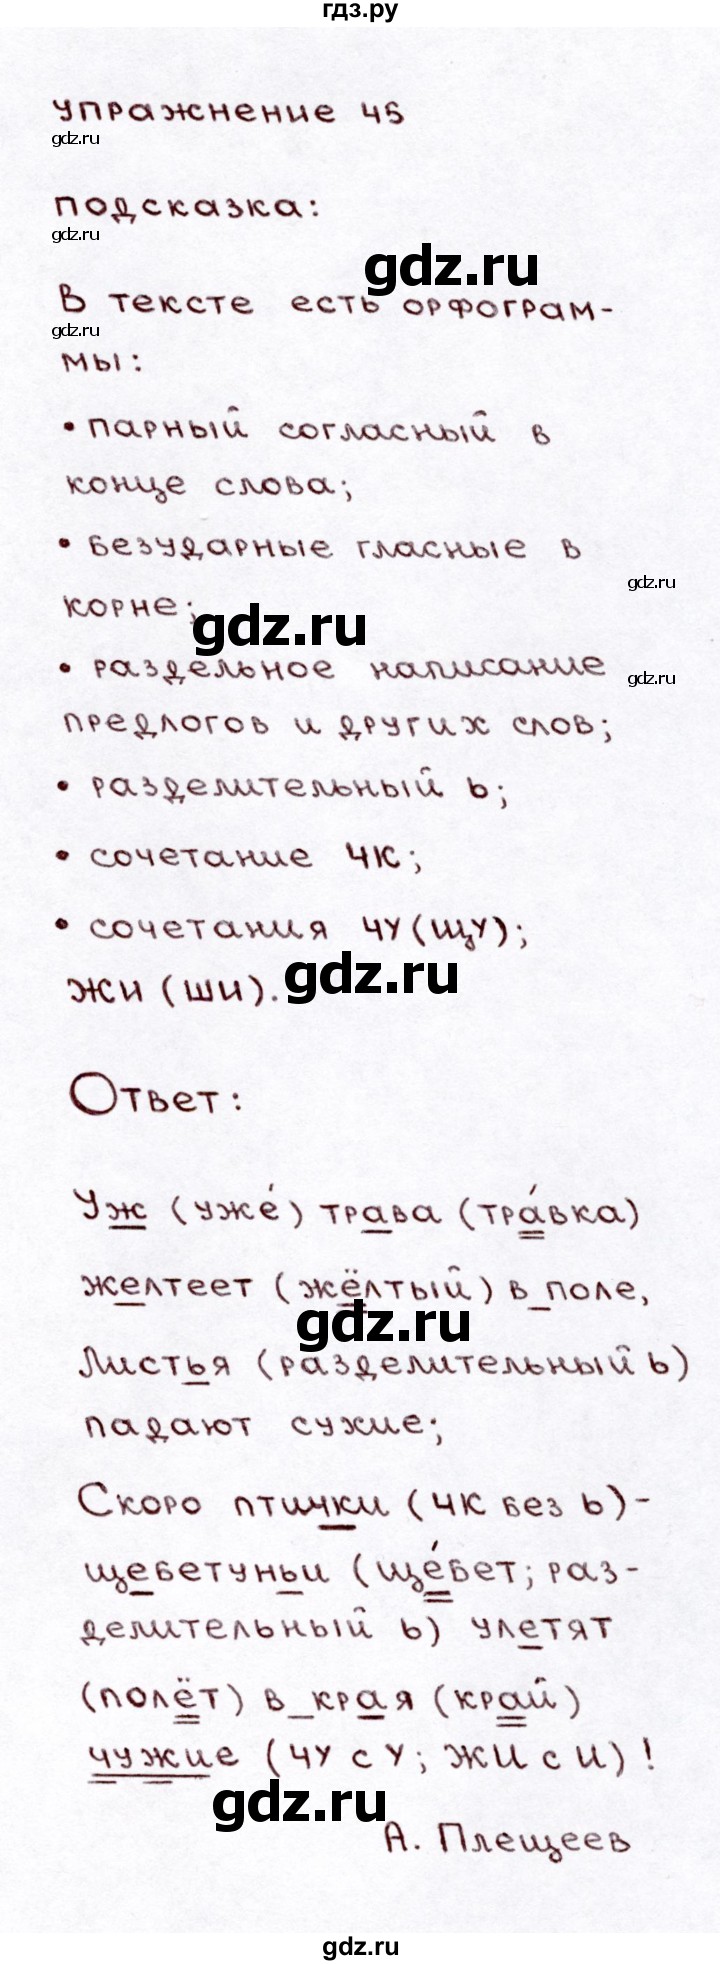 гдз.ру
упражнение 45
gdz.ru
подсказка:
gdz.ru
gdz.ru
В тексте есть орфограм-
gdz.ru
мы:
• парный согласный в
конце слова;
• безударные гласные в
gdz.ru
корне;
gdz.ru
• раздельное написание
gdz.ru
предлогов и других слов;
• разделительный ь;
• сочетание ЧК;
• сочетания ЧУ (ЩУ);
ЖИ (ШИ).
gdz.ru
Ответ:
Уж (уже́) трава (тра́вка)
желтеет (жёлтый) в_поле,
gdz.ru
Листья (разделительный ь)
падают сухие;
Скоро птички (ЧК без ь)-
щебетуньи (ще́бет; раз-
делительный ь) улетят
(полёт) в_края (край)
чужие (ЧУ с У; ЖИ с И)!
gdz.ru
А. Плещеев
gdz.ru